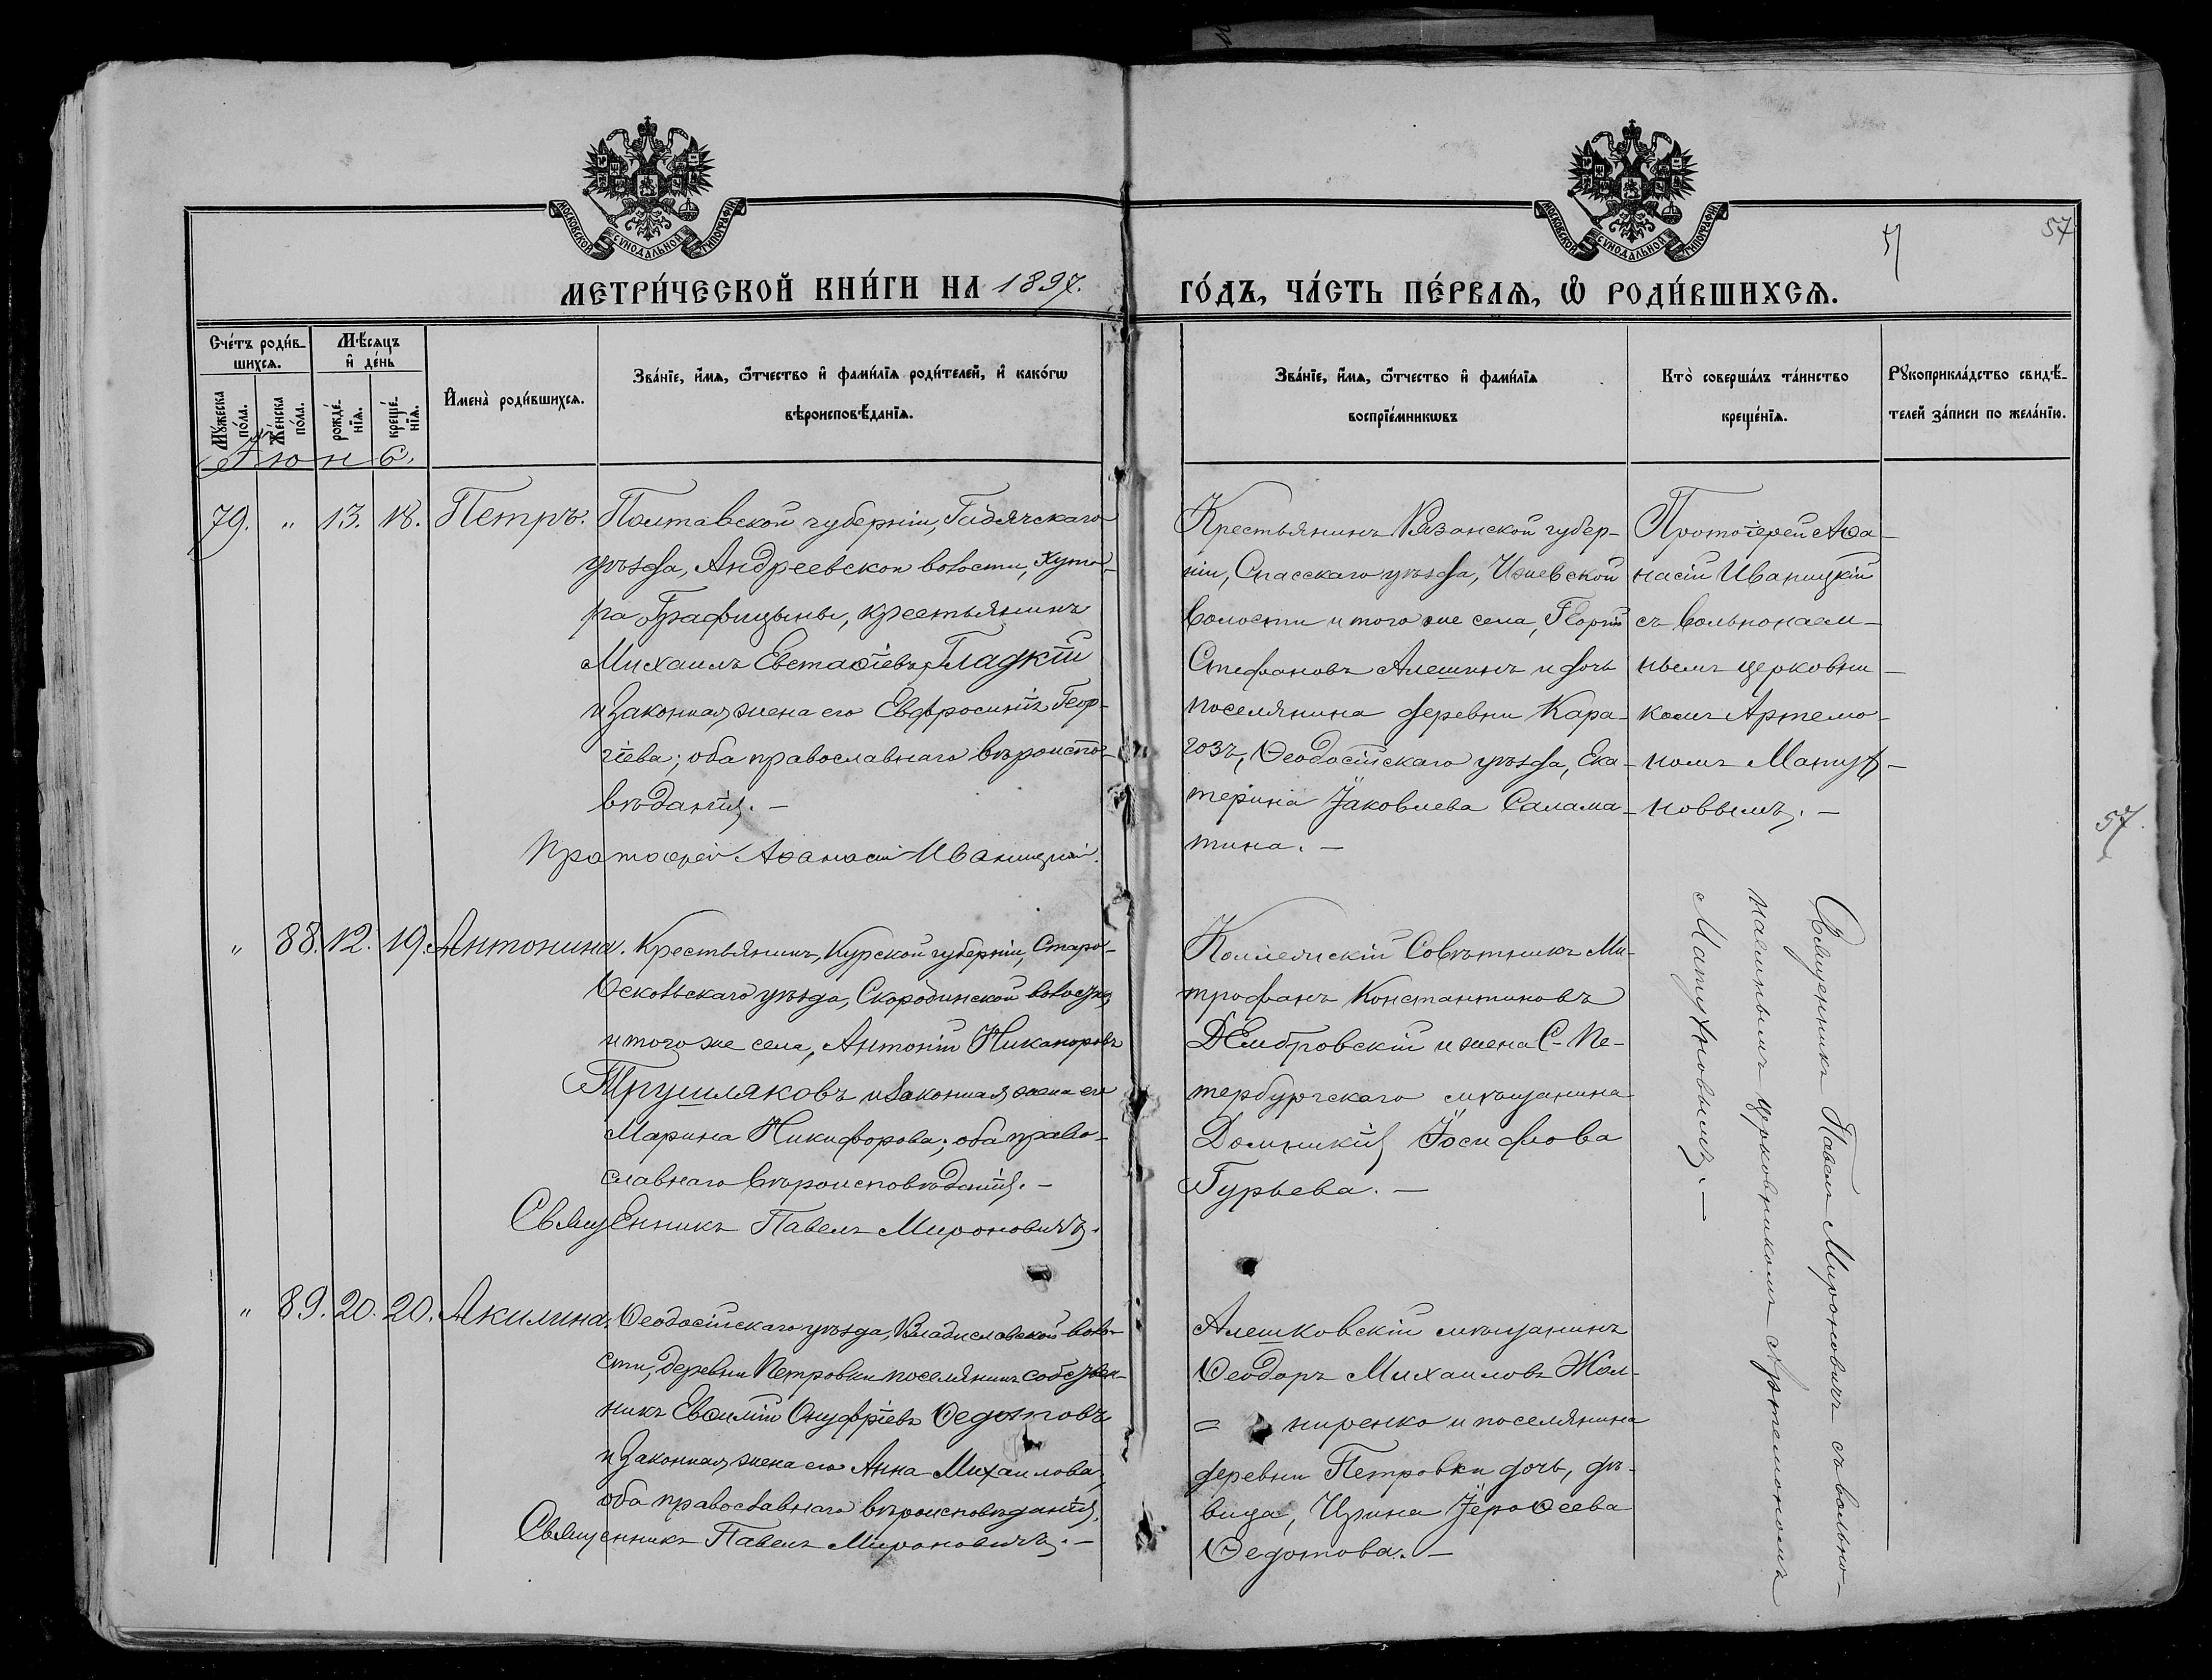 МОСКОВСКОЙ СУНОДАЛЬНОЙ ТИПОГРАФІИ
МОСКОВСКОЙ СУНОДАЛЬНОЙ ТИПОГРАФІИ
57
57
МЕТРИ́ЧЕСКОЙ КНИ́ГИ НА 1897.
ГО́ДЪ, ЧА́СТЬ ПЕ́РВАѦ, Ѡ҆ РОДИ́ВШИХСѦ.
Сче́тъ роди́в-
шихсѧ.
Мѣ́сѧцъ
и҆ де́нь
Мꙋ́жеска
по́ла.
Же́нска
по́ла.
рожде́-
нїѧ.
креще́-
нїѧ.
И҆мена̀ роди́вшихсѧ.
Зва́нїе, и҆́мѧ, ѻ҆́тчество и҆ фами́лїѧ роди́телей, и҆ како́гѡ
вѣроисповѣ́данїѧ.
Зва́нїе, и҆́мѧ, ѻ҆́тчество и҆ фами́лїѧ
воспрїе́мникѡвъ
Кто̀ соверша́лъ та́инство
креще́нїѧ.
Рꙋкоприкла́дство свидѣ́-
телей за́писи по жела́нїю.
Іюнь.
79. " 13. 18. Петръ.
Полтавской губерніи, Гадячскаго
уѣзда, Андреевской волости, хуто-
ра Графицыны, крестьянинъ
Михаилъ Евстаѳіевъ Гладкій
и законная жена его Евфросинія Геор-
гіева; оба православнаго вѣроиспо-
вѣданія. —
Протоіерей Аѳанасій Иваницкій.
Крестьянинъ Рязанской губер-
ніи, Спасскаго уѣзда, Ижевской
волости и того же села, Георгій
Стефановъ Алешинъ и дочь
поселянина деревни Кара-
гозъ, Ѳеодосійскаго уѣзда, Ека-
терина Іаковлева Салама-
тина. —
Протоіерей Аѳа-
насій Иваницкій
съ вольнонаем-
нымъ церковни-
комъ Артемо-
номъ
новымъ. —
57.
" 88. 12. 19. Антонина.
Крестьянинъ, Курской губерніи, Старо-
Оскольскаго уѣзда, Скороднинской волости,
и того же села, Антоній Никаноровъ
Трушляковъ и законная жена его
Марина Никифорова; оба право-
славнаго вѣроисповѣданія. —
Священникъ Павелъ Мироновичъ.
Коллежскій Совѣтникъ Ми-
трофанъ Константиновъ
Дембровскій и жена С-Пе-
тербургскаго мѣщанина
Домникія Іосифова
Гурьева. —
Священникъ Павелъ Мироновичъ съ вольно-
наемнымъ церковникомъ Артемономъ
" 89. 20. 20. Акилина.
Ѳеодосійскаго уѣзда, Владиславской воло-
сти, деревни Петровки поселянинъ собствен-
никъ Евѳимій Онуфріевъ Ѳедотовъ
и законная жена его Анна Михаилова,
оба православнаго вѣроисповѣданія.
Священникъ Павелъ Мироновичъ. —
Алешковскій мѣщанинъ
Ѳеодоръ Михаиловъ Жол-
= ниренко и поселянина
деревни Петровки дочь, дѣ-
вица, Ирина Іероѳеева
Ѳедотова. —